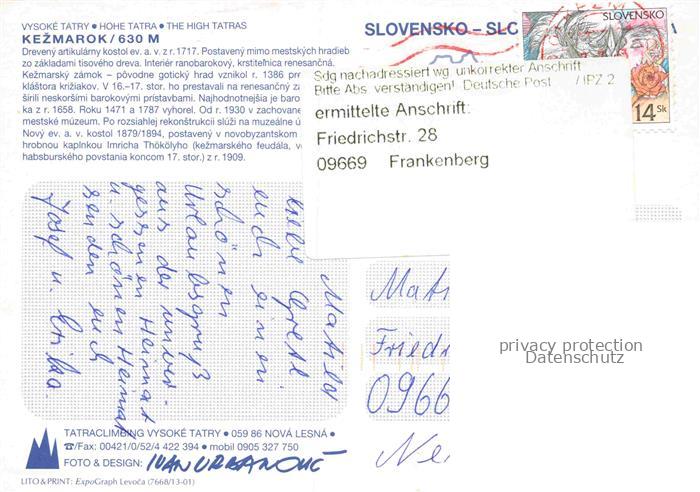 VYSOKÉ TATRY • HOHE TATRA • THE HIGH TATRAS
KEŽMAROK / 630 M
Drevený artikulárny kostol ev. a. v. z r. 1717. Postavený mimo mestských hradieb
zo základami tisového dreva. Interiér ranobarokový, krstiteľnica renesančná.
Kežmarský zámok – pôvodne gotický hrad vznikol r. 1386 pre
kláštora križiakov. V 16.–17. stor. ho prestavali na renesančný zá
šírili neskoršími barokovými prístavbami. Najhodnotnejšia je baro
ka z r. 1658. Roku 1471 a 1787 vyhorel. Od r. 1930 v zachovane
mestské múzeum. Po rozsiahlej rekonštrukcii slúži na muzeálne ú
Nový ev. a. v. kostol 1879/1894, postavený v novobyzantskom
hrobnou kaplnkou Imricha Thökölyho (kežmarského feudála, ve
habsburského povstania koncom 17. stor.) z r. 1909.
SLOVENSKO – SLO
SLOVENSKO
14 Sk
Sdg nachadressiert wg. unkorrekter Anschrift
Bitte Abs. verständigen! Deutsche Post / IPZ 2
ermittelte Anschrift:
Friedrichstr. 28
09669 Frankenberg
Matild
Liebe Gretl
euch einen
schönen
Urlaubsgruß
aus der unver-
gessenen Heimat
u. schönen Heimat
senden euch
Josef u. Erika
Mati
Friedr
0966
privacy protection
Datenschutz
TATRACLIMBING VYSOKÉ TATRY • 059 86 NOVÁ LESNÁ •
☎/Fax: 00421/0/52/4 422 394 • mobil 0905 327 750
FOTO & DESIGN: IVAN URBANOVIČ
LITO & PRINT: ExpoGraph Levoča (7668/13-01)